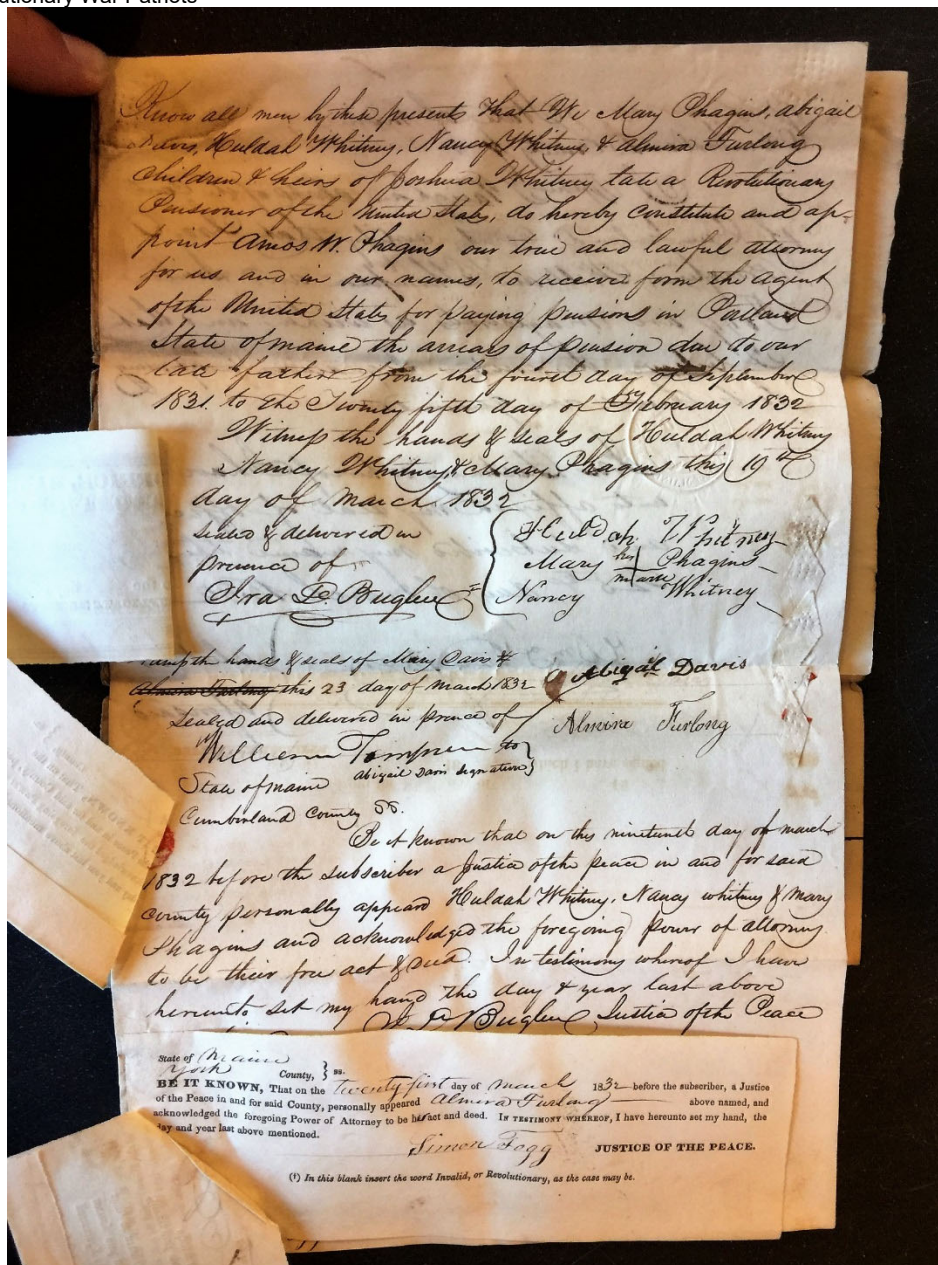 utionary War Patriots
Know all men by these presents that We Mary Phagins, abigail
Davis, Huldah Whitney, Nancy Whitney, & Almira Furlong
Children & heirs of Joshua Whitney late a Revolutionary
Pensioner of the United States, do hereby constitute and ap-
point Amos W. Phagins our true and lawful attorney
for us and in our names, to receive from the agent
of the United States for paying pensions in Portland
State of maine the arrears of pension due to our
late father from the fourth day of September
1831. to the Twenty fifth day of February 1832
Witness the hands & seals of Huldah Whitney
Nancy Whitney & Mary Phagins this 19th
day of March 1832
sealed & delivered in
presence of
Huldah Whitney
Mary her mark Phagins
Nancy Whitney
hands & seals of Mary Davis &
Almira Furlong this 23 day of march 1832
Abigal Davis
Sealed and delivered in presence of
Almira Furlong
William
to
abigail Davis signature
State of maine
Cumberland County SS.
Be it known that on this nineteenth day of march
1832 before the subscriber a Justice of the peace in and for said
County personally appeard Huldah Whitney, Nancy whitney & Mary
Phagins and acknowledged the foregoing Power of attorney
to be their free act & deed. In testimony whereof I have
hereunto set my hand the day & year last above
Justice of the Peace
State of Maine
York County, } ss.
BE IT KNOWN, That on the twenty first day of march 1832 before the subscriber, a Justice
of the Peace in and for said County, personally appeared Almira Furlong above named, and
acknowledged the foregoing Power of Attorney to be his act and deed. IN TESTIMONY WHEREOF, I have hereunto set my hand, the
day and year last above mentioned.
Simon Fogg JUSTICE OF THE PEACE.
(†) In this blank insert the word Invalid, or Revolutionary, as the case may be.